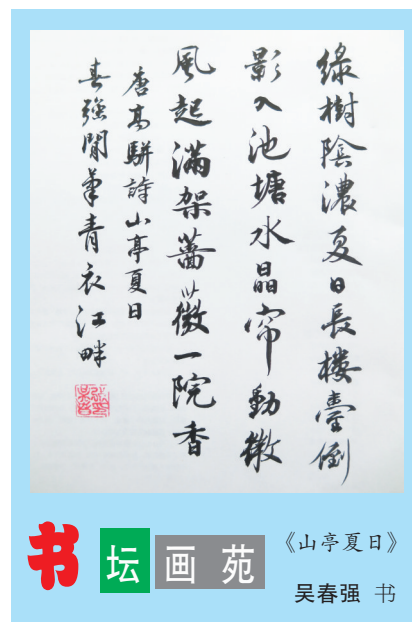 綠樹陰濃夏日長樓臺倒
影入池塘水晶帘動微
風起滿架薔薇一院香
唐高駢詩山亭夏日
春強閒筆青衣江畔
书坛画苑
《山亭夏日》
吴春强 书